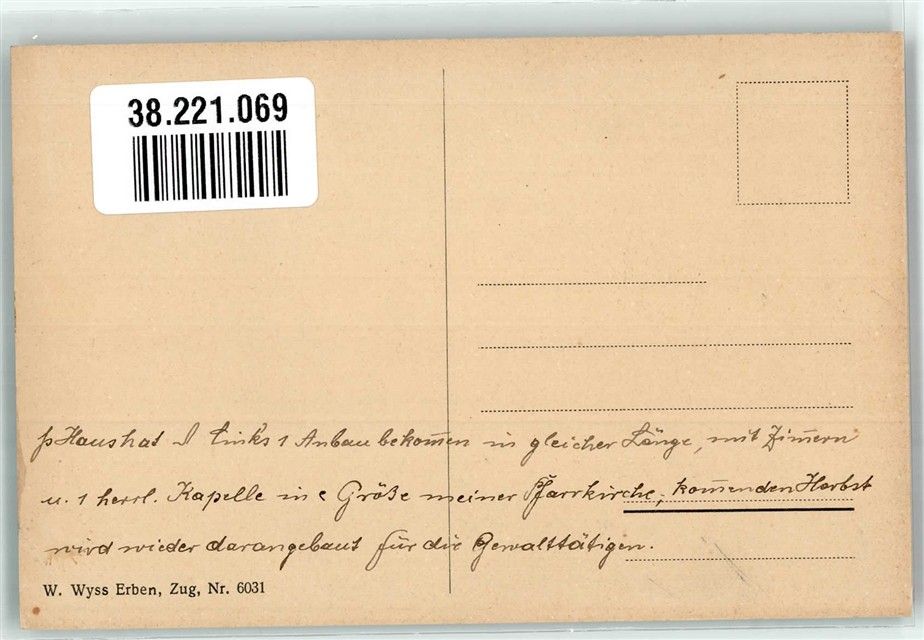 38.221.069
Haus hat links 1 Anbau bekommen in gleicher Länge, mit Zimmern
u. 1 herrl. Kapelle in e Größe meiner Pfarrkirche, kommenden Herbst
wird wieder darangebaut für die Gewalttätigen.
W. Wyss Erben, Zug, Nr. 6031